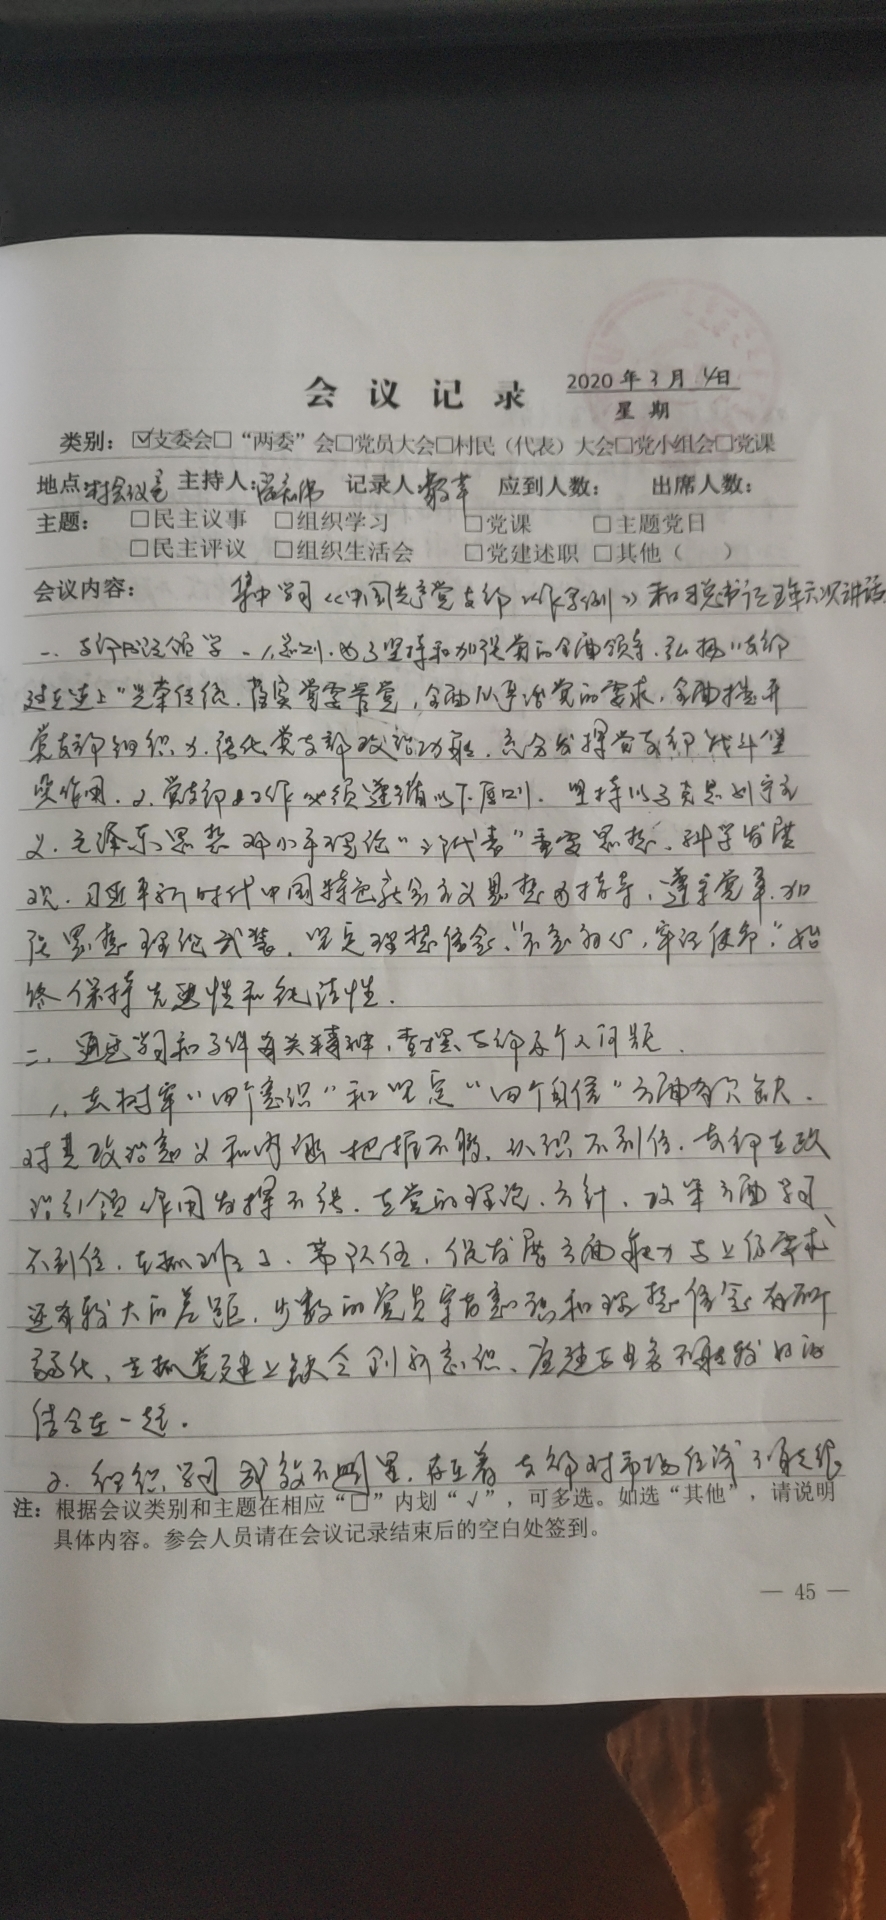 会 议 记 录 2020 年 3 月 日
星 期
类别: ☑支委会□“两委”会□党员大会□村民（代表）大会□党小组会□党课
地点: 村会议室 主持人: 记录人: 应到人数: 出席人数:
主题: □民主议事 □组织学习 □党课 □主题党日
□民主评议 □组织生活会 □党建述职 □其他（ ）
会议内容: 集中学习《中国共产党支部工作条例》和习总书记 讲话
一、支部书记领学 1、总则.为了坚持和加强党的全面领导.弘扬“支部
建在连上”光荣传统.落实党要管党,全面从严治党的要求,全面提升
党支部组织力.强化党支部政治功能.充分发挥党支部战斗堡
垒作用.2.党支部工作必须遵循以下原则.坚持以马克思列宁主
义.毛泽东思想 邓小平理论“三个代表”重要思想.科学发展
观.习近平新时代中国特色社会主义思想为指导,遵守党章.加
强思想理论武装,坚定理想信念,“不忘初心,牢记使命.”始
终保持先进性和纯洁性.
二、通过学习和文件有关精神,查摆支部及个人问题.
1、在树牢“四个意识”和坚定“四个自信”方面有欠缺.
对其政治意义和内涵把握不够,认识不到位.支部在政
治引领作用发挥不强.在党的理论.方针,政策方面学习
不到位,在抓班子、带队伍,促发展方面能力与上级要求
还有较大的差距,少数的党员宗旨意识和理想信念有所
弱化,在抓党建上缺乏创新意识、党建与业务不能较好的
结合在一起.
2.组织学习成效不明显,存在着支部对市场经济不能
注: 根据会议类别和主题在相应“□”内划“√”，可多选。如选“其他”，请说明
具体内容。参会人员请在会议记录结束后的空白处签到。
— 45 —